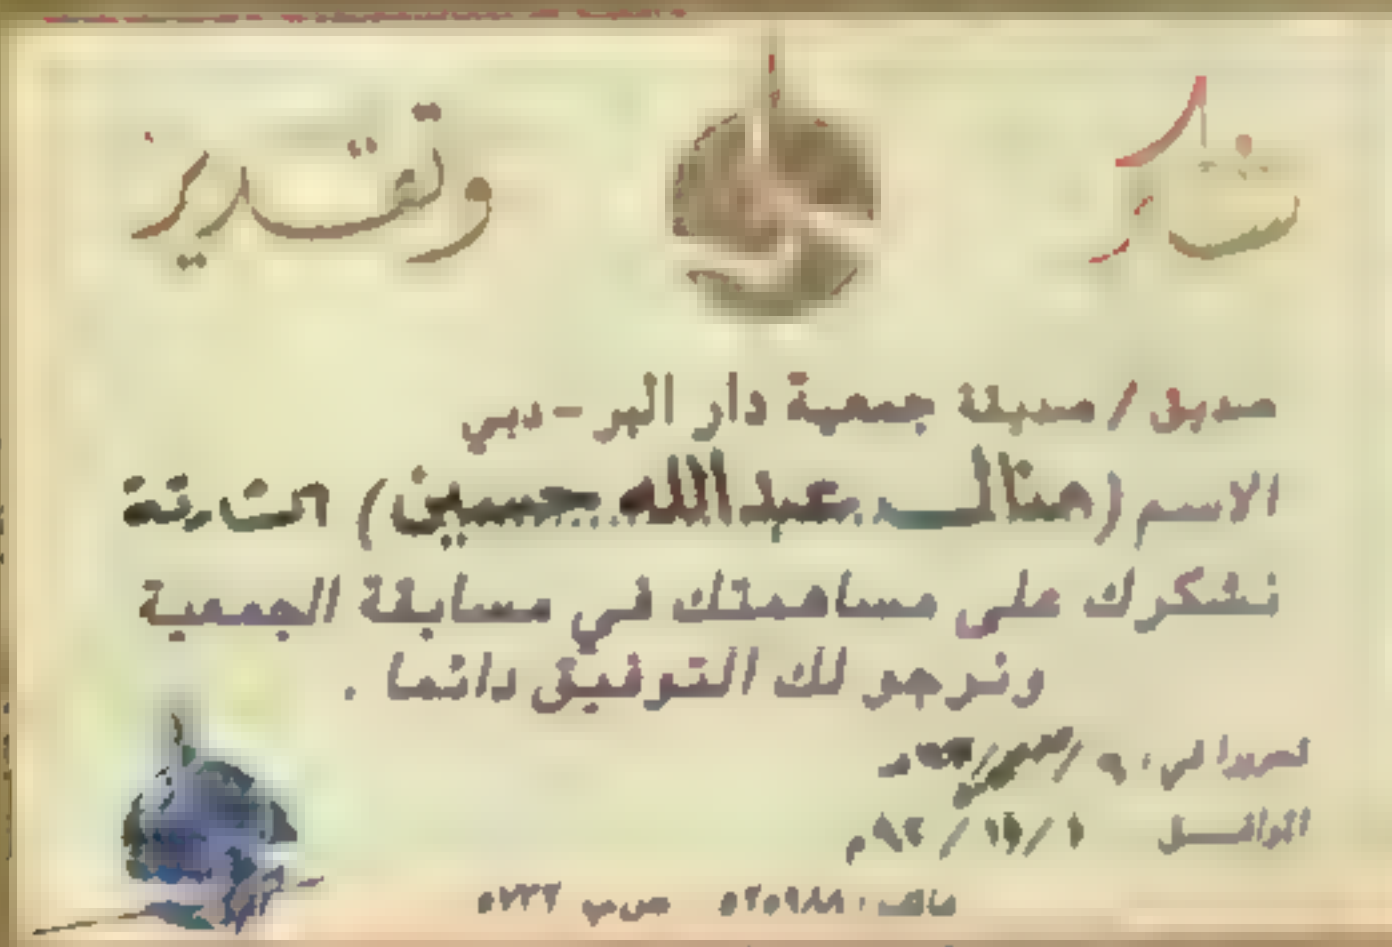 شكر وتقدير
صديق / صديقة جمعية دار البر - دبي
الاسم ( منال عبدالله حسين ) الشارقة
نشكرك على مساهمتك في مسابقة الجمعية
ونرجو لك التوفيق دائما .
تحريرا في :
الموافق
هاتف : ٥٢٥٩٨٨ ص.ب ٥٧٣٢